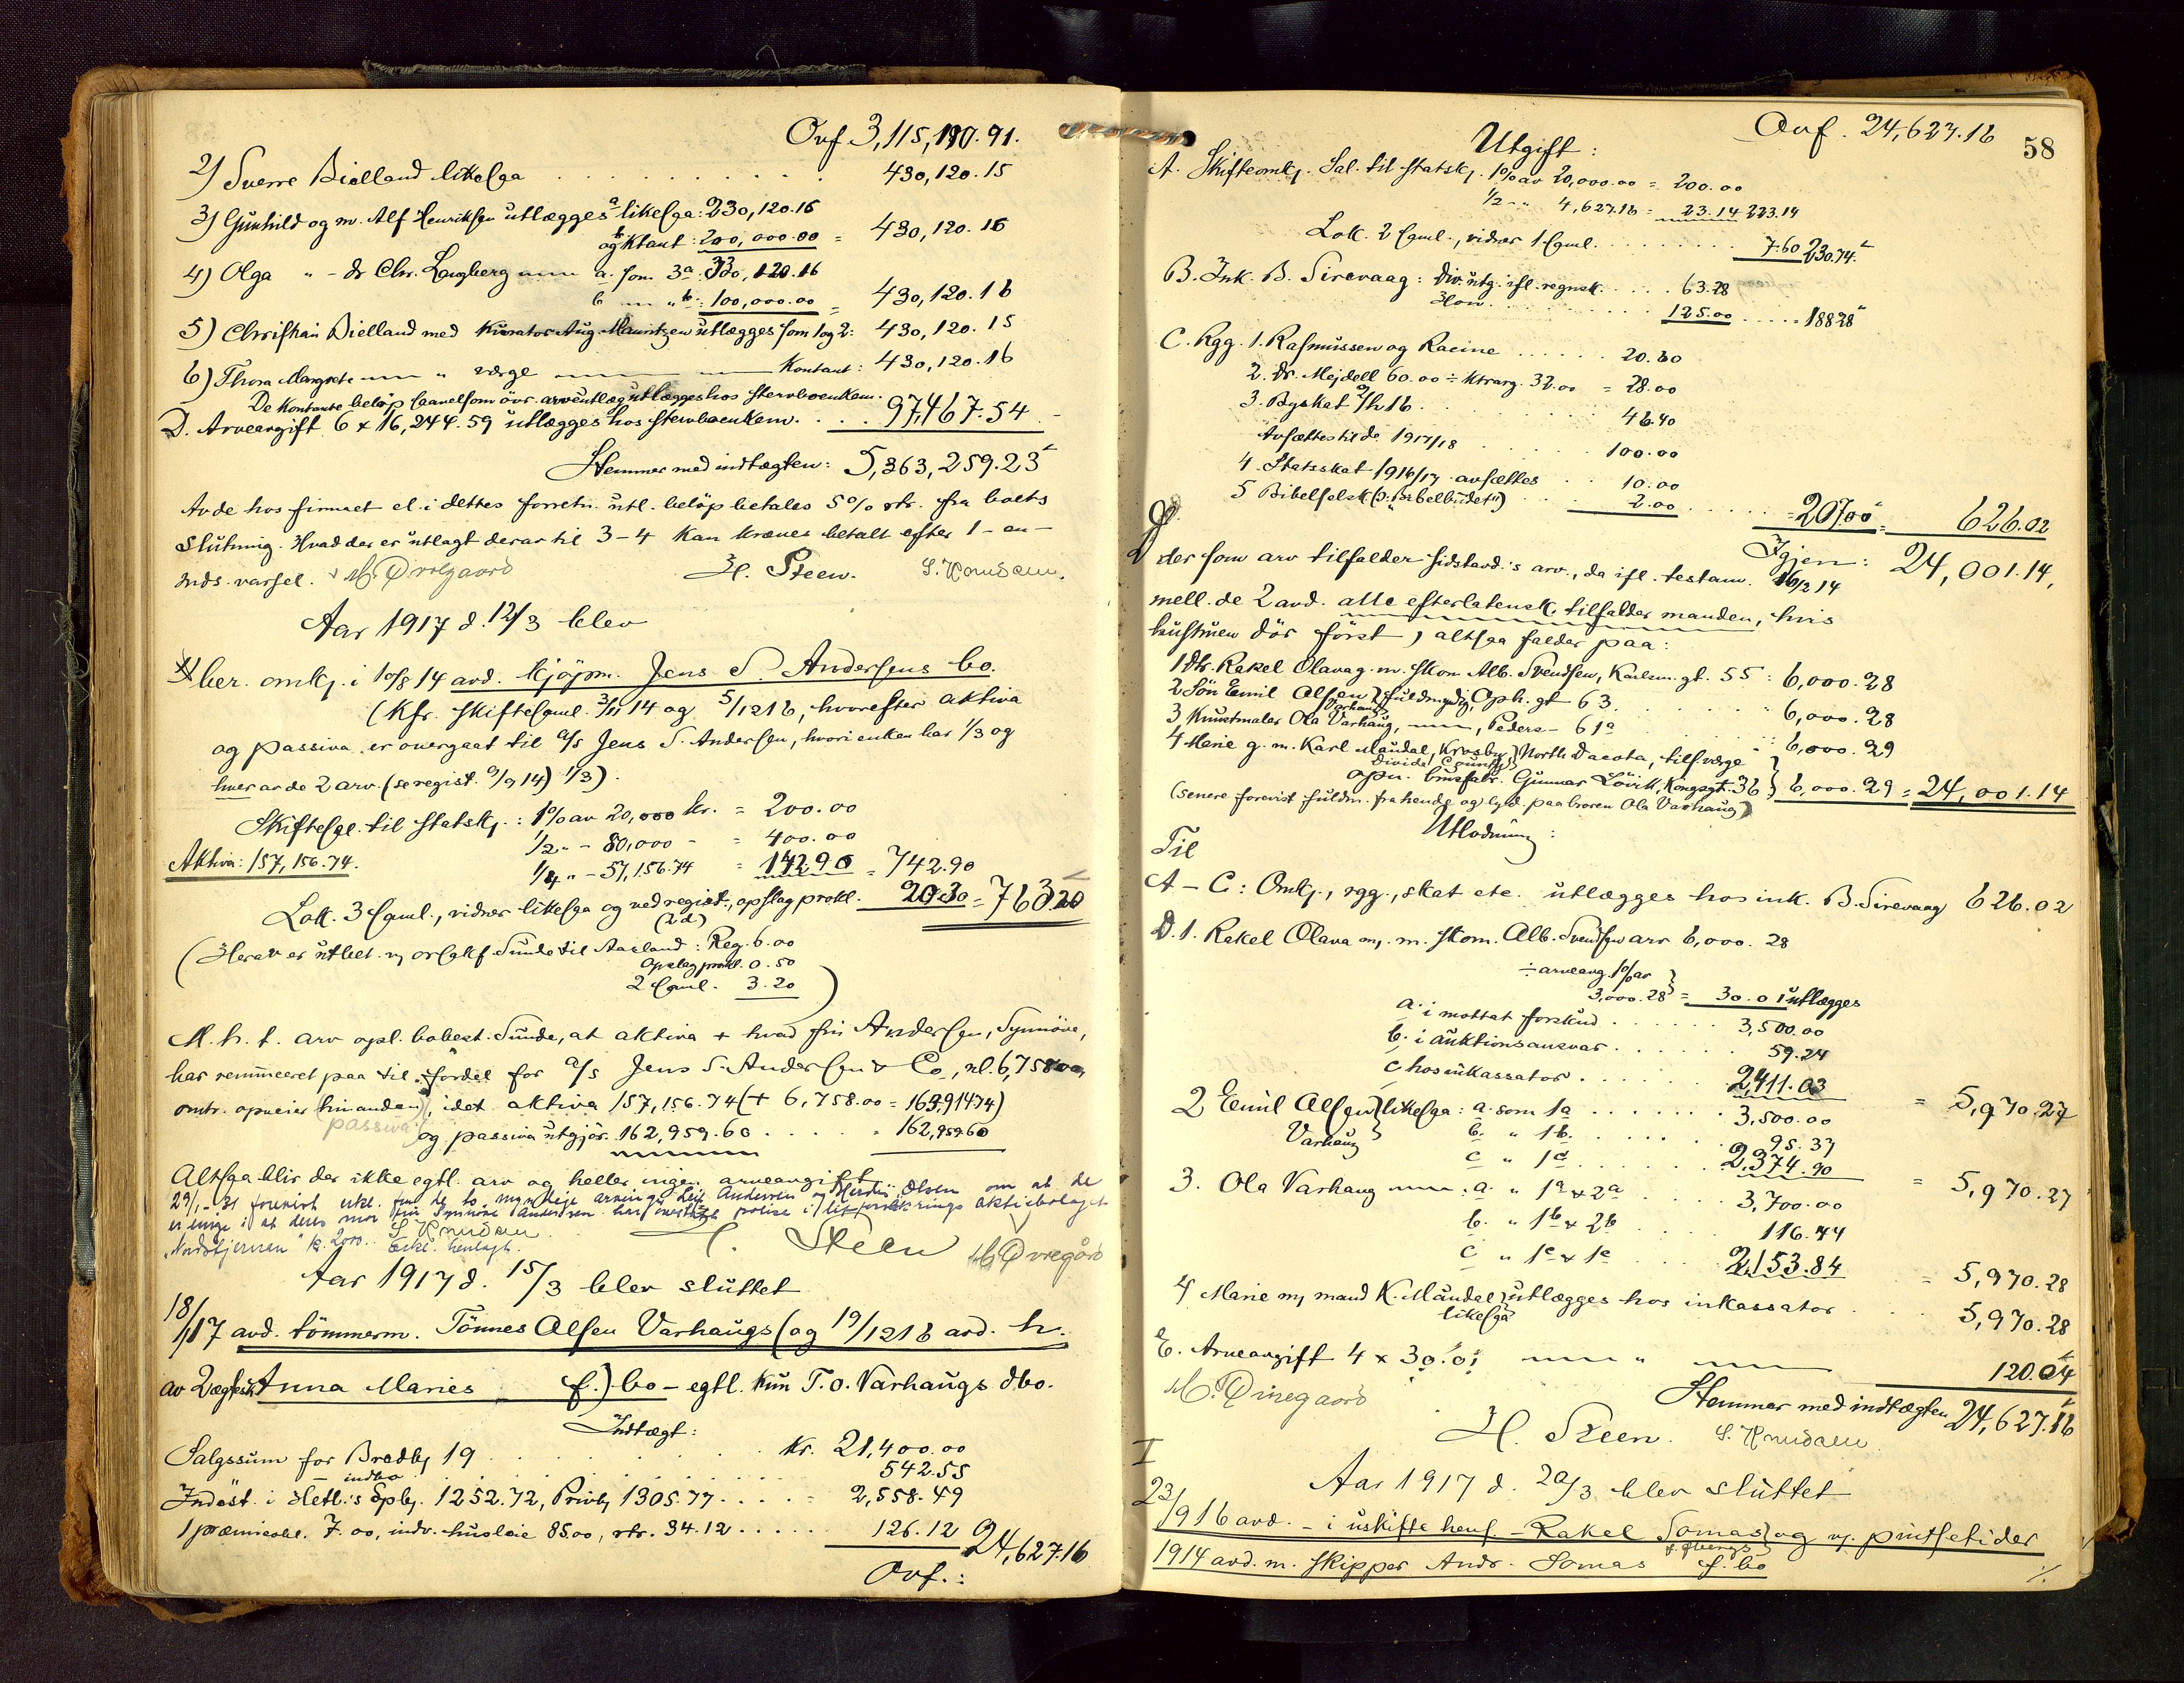 Ovf. 3,115,190.91.
2) Sverre Bielland likesaa . . . . . . . . . 430,120.15
3) Gunhild og m. Alf Henriksen utlægges a likesaa: 230,120.16
b og ktant: 200,000.00 = 430,120.16
4) Olga " - dr Chr. Langberg a. som 3a. 330,120.16
b " b: 100,000.00 = 430,120.16
5) Christian Bielland med Kurator Aug. Mauritzen utlægges som 1 og 2: 430,120.15
6) Thora Margrete " værge Kontant: 430,120.16
De kontante beløp saavelsom övr. arveutlæg utlægges hos stervboenkem.
D. Arveavgift 6 x 16,244.59 utlægges hos stervboenkem. . . 97,467.54
Stemmer med indtægten: 5,363,259.23
Av de hos firmaet el. i dettes forretn. utl. beløp betales 5% rtr. fra boets
slutning. Hvad der er utlagt derav til 3-4 kan kræves betalt efter 1-en-
mds. varsel. M. Øvregaard H. Steen. S. Knudsen.
Aar 1917 d. 12/3 blev
ber. omkj. i 10/8 14 avd. kjöpm. Jens S. Andersens bo.
(Kfr. skiftesaml. 3/11 14 og 5/12 16, hvorefter aktiva
og passiva er overgaat til a/s Jens S. Andersen, hvori enken har 1/3 og
hver av de 2 arv. (se regist. 9/9 14) 1/3).
Skiftesal. til statskj.: 1% av 20,000 kr. = 200.00
1/2 " - 80,000 - = 400.00
Aktiva: 157,156.74. 1/4 " - 57,156.74 = 142.90 = 742.90
Lok. 3 saml., vidner likesaa og ved regist., opslag prokl. 20.30 = 763.20
(2 d)
(Herav er utbet. v. orsakf. Sunde til Aasland: Reg. 6.00
Opslag prokl. 0.50
2 saml. 3.20)
M. h. t. arv opl. bobest. Sunde, at aktiva + hvad fru Andersen, Synnöve,
har renunceret paa til fordel for a/s Jens S. Andersen & Co, nl. 6,758.00,
omtr. opveier hinanden, idet aktiva 157,156.74 (+ 6,758.00 = 163,914.74)
passiva og passiva utgjör 162,959.60 . . . . . = 162,959.60
Altsaa blir der ikke egtl. arv og heller ingen arveavgift
29/1-31 forevist erkl. fra de to myndige arvinger Leif Andersen og Herdis Olsen om at de
er enige i at deres mor fru Synnöve Andersen har overtat polise i livsforsikrings aktieselskapet
"Nordstjernen" kr. 2000. S. Knudsen Erkl. henlagt.
H. Steen M. Øvregård
Aar 1917 d. 15/3 blev sluttet
18/1 17 avd. tömmerm. Tönnes Olsen Varhaugs (og 19/12 16 avd. h.
av 2 ægtesk. Anna Maries f.) bo - egtl. kun T. O. Varhaugs dbo.
Indtægt:
Salgssum for Bredbg 19 . . . . . . kr. 21,400.00
— indbo . . . . . . 542.55
Indest. i Hetl.'s Spbk. 1252.72, Privbk 1305.77 . . . . = 2,558.49
1 præmieobl. 7.00, indv. husleie 85.00, rtr. 34.12 . . . . . 126.12 24,627.16
Ovf.:
58
Ovf. 24,627.16
Utgift:
A. Skifteomkj. Sal. til statskj. 1% av 20,000.00 = 200.00
1/2 - " 4,627.16 = 23.14 223.14
Lok. 2 saml., vidner 1 saml. . . . . . . . 7.60 230.74
B. Ink. B. Sirevaag: Div. utg. ifl. regnsk. . . . . 63.28
Hon. . . . . . . . . . 125.00 . . . . 188.28
C. Rgg. 1. Rasmussen og Racine . . . . . . 20.60
2. Dr. Mejdell 60.00 ÷ ktrarg. 32.00 = 28.00
3. Byskat 2/h 16 . . . . . . 46.40
Avsættes til do 1917/18 . . . . . 100.00
4. Statsskat 1916/17 avsættes . . 10.00
5 Bibelselsk (ɔ: "Bibelbudet") . . . 2.00 . . . . . = 207.00 = 626.02
Igjen: 24,001.14,
der som arv tilfalder sidstavd.'s arv., da ifl. testam. 16/2 14
mell. de 2 avd. alle efterlatensk. tilfalder manden, hvis
hustruen dör först, altsaa falder paa:
1 Dtr. Rakel Olava g. m. skom. Alb. Svendsen, Karlsm. gt. 55: 6,000.28
2 Sön Emil Olsen Varhaug, fuldmyndig, Oph. gt 63. . . . . . 6,000.28
3 Kunstmaler Ola Varhaug, Peders - 61a . . . . 6,000.29
4 Marie g. m. Karl Maudal, Krosby, North Dacota, tilsværge
Divide County
opn. brusfabr. Gunnar Lövik, Kongsgt. 36 } 6,000.29 = 24,001.14
(senere forevist fuldm. fra hende og lyd. paa broren Ola Varhaug)
Utlodning:
Til
A - C: Omkj., rgg., skat etc. utlægges hos ink. B. Sirevaag 626.02
D. 1. Rakel Olava m. m. skom. Alb. Svendsen arv 6,000.28
÷ arveavg. 1% av
3,000.28 = 30.01 utlægges
a. i mottat forskud . . . . . . 3,500.00
b. i auktionsansvar . . . . . . 59.24
c hos inkassator . . . . . . 2,411.03 = 5,970.27
2 Emil Olsen Varhaug } likesaa: a. som 1a . . . . . . 3,500.00
b. " 1b . . . . . . 95.37
c " 1c . . . . . . 2,374.90 = 5,970.27
3. Ola Varhaug : a. " 1a & 2a . . . . 3,700.00
b. " 1b & 2b . . . . 116.44
c " 1c & 1c . . . . 2,153.84 = 5,970.28
4 Marie m, mand K. Maudal } utlægges hos inkassator . . . . 5,970.28
likesaa
E. Arveavgift 4 x 30.01 " 120.04
M. Øvregaard Stemmer med indtægten 24,627.16
H. Steen. S. Knudsen.
I
Aar 1917 d. 20/3 blev sluttet
23/9 16 avd. - i uskifte hens. - Rakel Somas og v. pintsetider
f. Obergs
1914 avd. m. skipper Andr. Somas f. bo